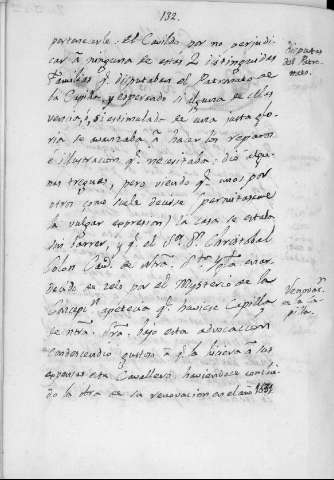 132.
pertenecerle. El Cavildo por no perjudi-
car â ninguna de estas 2 distinguidas
Familias qe. disputaban el Patronato de
la Capilla, y esperando si alguna de ellas
venia, ô, si estimulada de una justa glo-
ria se avanzaba â hacer los reparos
ê ilustracion qe. necesitaba: dió algu-
nas treguas, pero viendo qe. unos por
otros (como suele decirse permitaseme
la vulgar expresion) la casa se estaba
sin barrer, y qe. el Sor. Dn. Christobal
Colon de ntra. Sta. Ygla.
decido su zelo por el Mysterio de la
Concepn. apetecia qe. huviese Capilla
de ntra. Sra. bajo esta advocacion
condescendió gustoso â qe. la hiciera â sus
expensas este Cavallero haviendose conclui-
do la obra de su renovacion en el año 1631
disputas
del Patro-
nato.
Renovan.
en la Ca-
pilla.